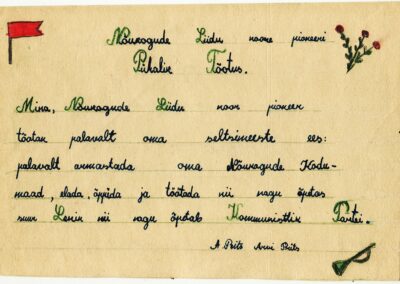 Nõukogude Liidu noore pioneeri
Pühalik Tõotus.
Mina, Nõukogude Liidu noor pioneer
tõotan palavalt oma seltsimeeste ees:
palavalt armastada oma Nõukogude Kodu-
maad, elada, õppida ja töötada nii nagu õpetas
suur Lenin nii nagu õpetab Kommunistlik Partei.